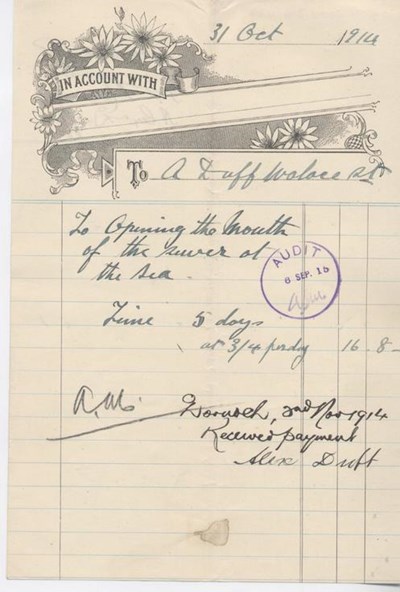 31 Oct 1914
IN ACCOUNT WITH
To A Duff Walace St
To Opening the Mouth
of the sewer at
the sea.
AUDIT
8 SEP. 15
A.M.
Time 5 days
at 3/4 per day 16-8-
A.M.
Dornoch, 2nd Nov 1914
Received payment
Alex Duff